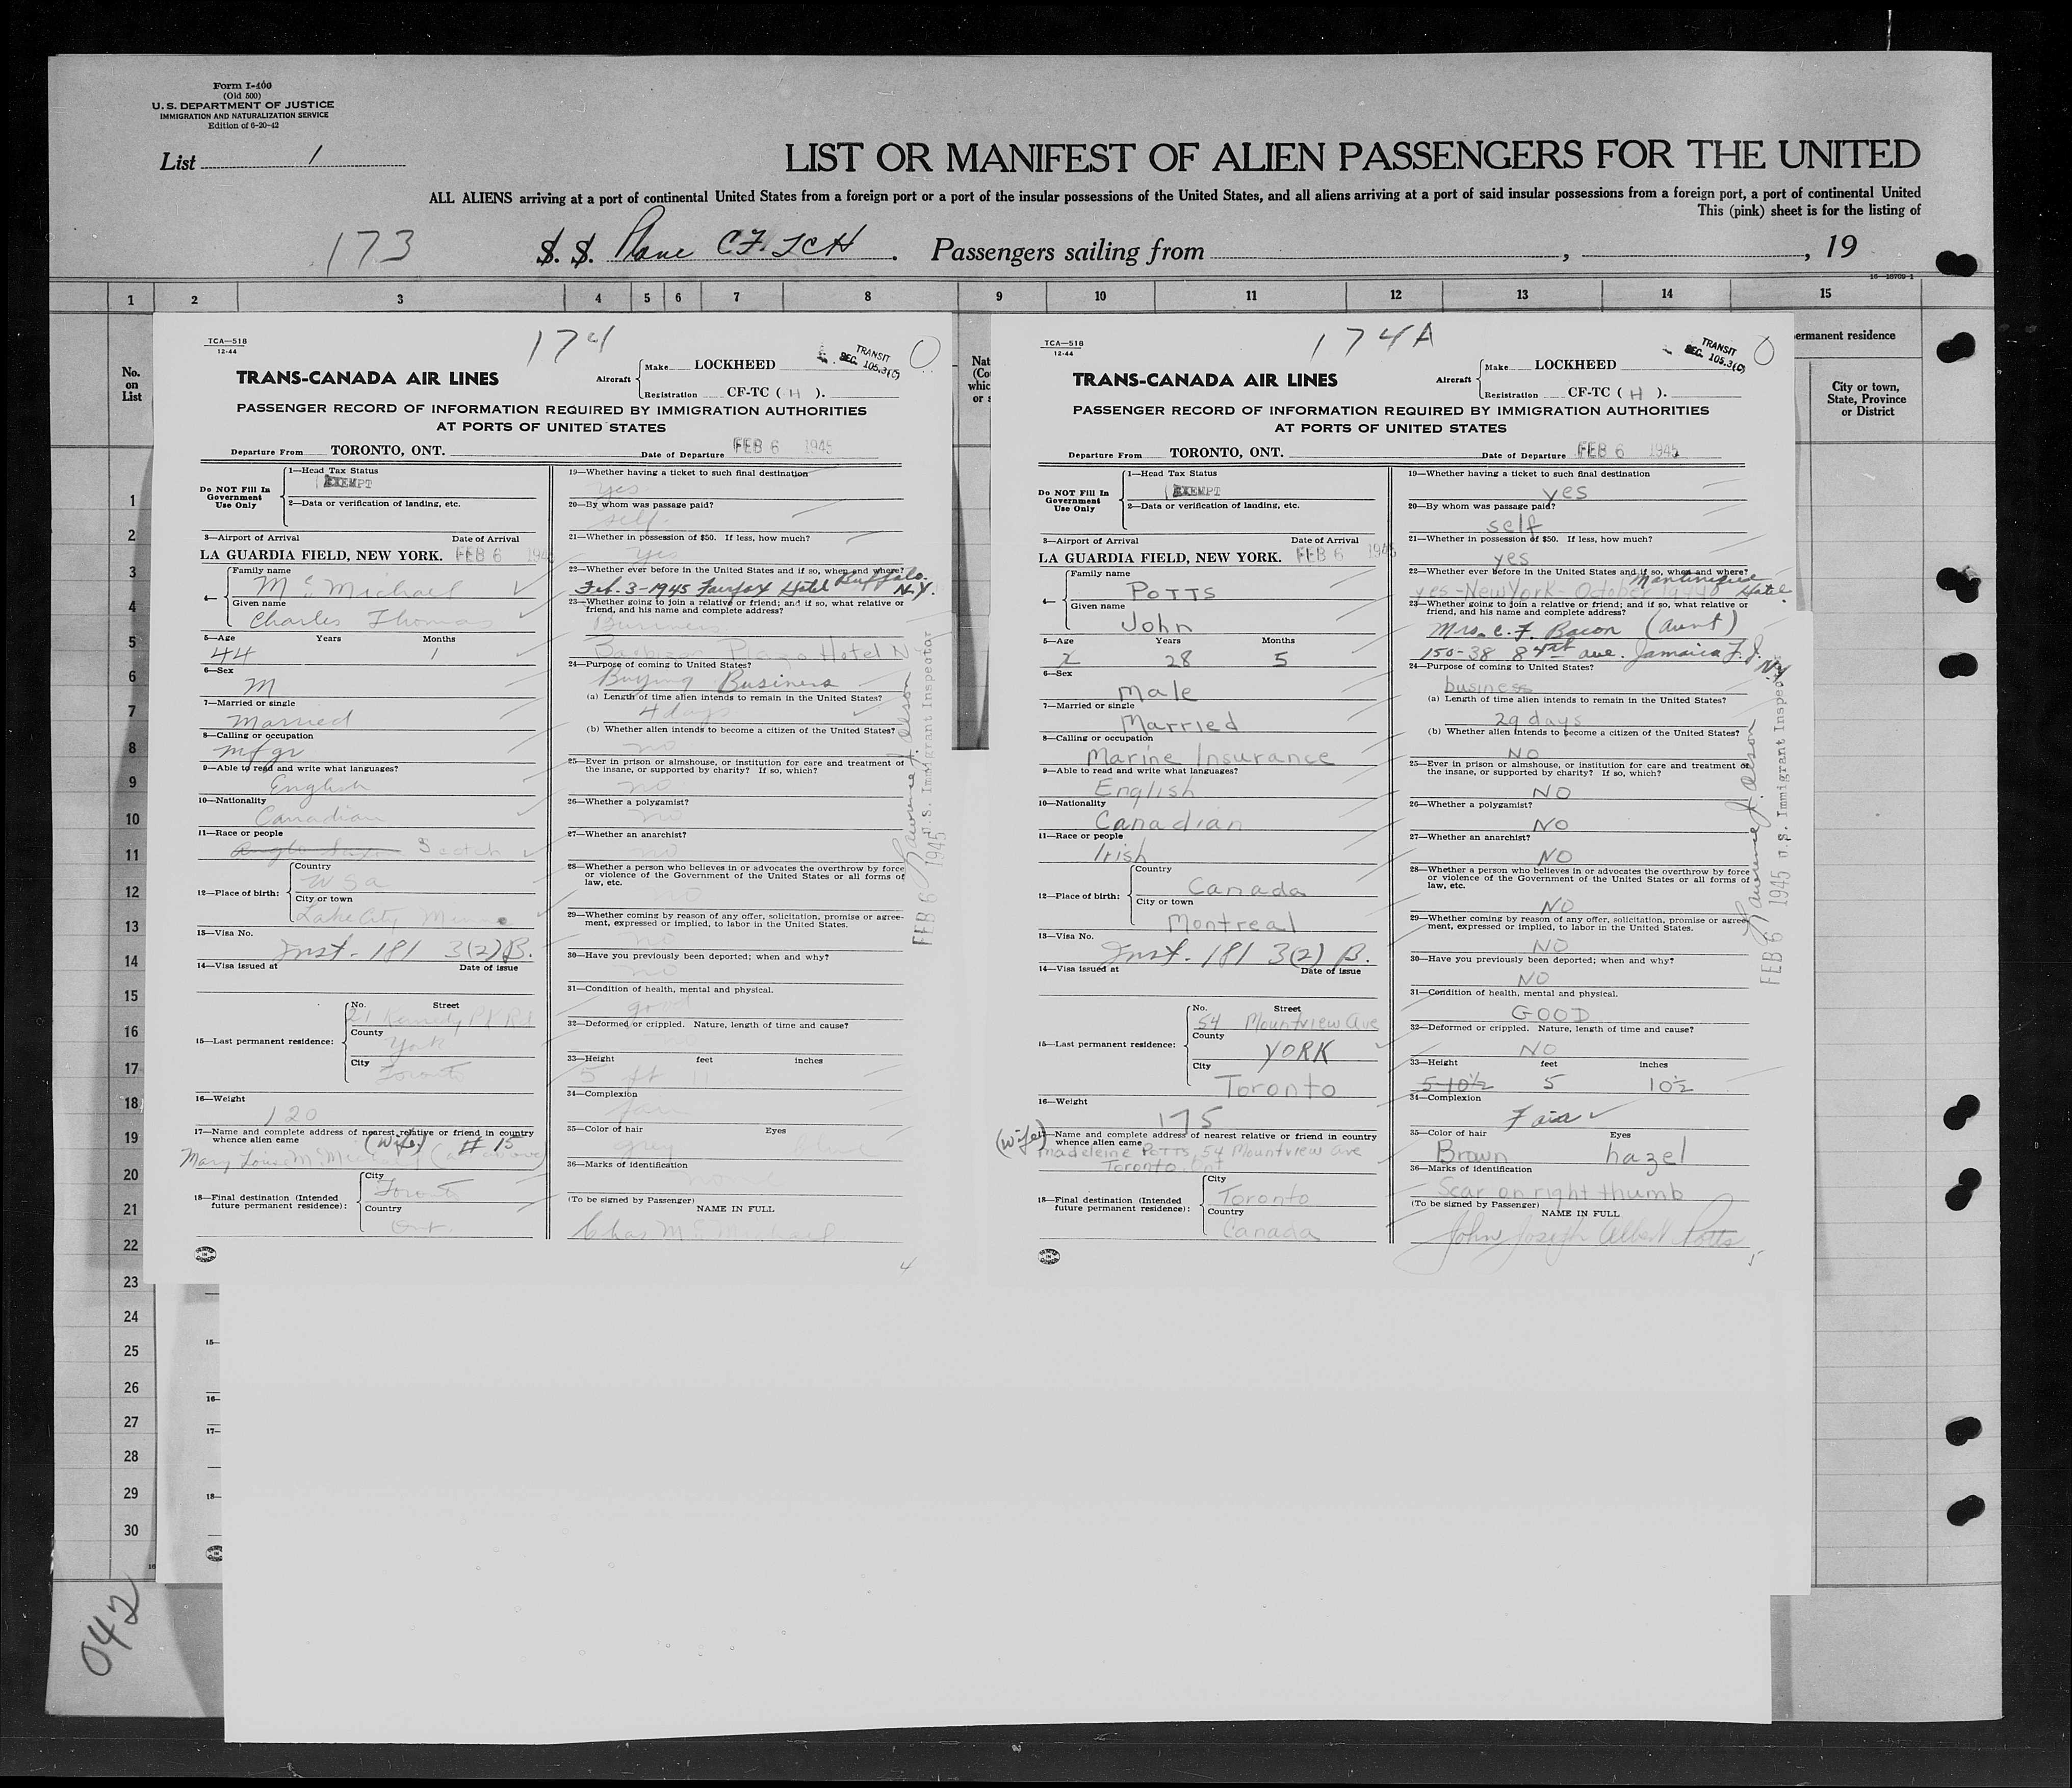 Form I-400
(Old 500)
U. S. DEPARTMENT OF JUSTICE
IMMIGRATION AND NATURALIZATION SERVICE
Edition of 6-20-42
List 1
LIST OR MANIFEST OF ALIEN PASSENGERS FOR THE UNITED
ALL ALIENS arriving at a port of continental United States from a foreign port or a port of the insular possessions of the United States, and all aliens arriving at a port of said insular possessions from a foreign port, a port of continental United
This (pink) sheet is for the listing of
173 S. S. Plane CF. TCH . Passengers sailing from , , 19
16—18709-1
1 2 3 4 5 6 7 8 9 10 11 12 13 14 15
No.
on
List
Nat
(Co
whic
or s
ermanent residence
City or town,
State, Province
or District
1
2
3
4
5
6
7
8
9
10
11
12
13
14
15
16
17
18
19
20
21
22
23
24
25
26
27
28
29
30
15—
16—
17—
18—
042
TCA—518
12-44
174
TRANSIT
SEC. 105.3(C)
TRANS-CANADA AIR LINES
Aircraft
Make LOCKHEED
Registration CF-TC ( H ).
PASSENGER RECORD OF INFORMATION REQUIRED BY IMMIGRATION AUTHORITIES
AT PORTS OF UNITED STATES
Departure From TORONTO, ONT. Date of Departure FEB 6 1945
Do NOT Fill In
Government
Use Only
1—Head Tax Status
EXEMPT
2—Data or verification of landing, etc.
3—Airport of Arrival Date of Arrival
LA GUARDIA FIELD, NEW YORK. FEB 6 1945
4— Family name
McMichael
Given name
Charles Thomas
5—Age Years Months
44 1
6—Sex
M
7—Married or single
Married
8—Calling or occupation
mfgr
9—Able to read and write what languages?
English
10—Nationality
Canadian
11—Race or people
Anglo Saxon Scotch
12—Place of birth:
Country
USa
City or town
Lake City Minn
13—Visa No.
Inst. 181 3(2)B.
14—Visa issued at Date of issue
15—Last permanent residence:
No. Street
21 Kennedy Pk Rd
County
York
City
Toronto
16—Weight
120
17—Name and complete address of nearest relative or friend in country
whence alien came (wife) # 15
Mary Louise McMichael
18—Final destination (Intended
future permanent residence):
City
Toronto
Country
Ont.
19—Whether having a ticket to such final destination
yes
20—By whom was passage paid?
self
21—Whether in possession of $50. If less, how much?
yes
22—Whether ever before in the United States and if so, when and where?
Feb. 3-1945 Fairfax Hotel Buffalo N.Y.
23—Whether going to join a relative or friend; and if so, what relative or
friend, and his name and complete address?
Business
Barbizon Plaza Hotel N
24—Purpose of coming to United States?
Buying Business
(a) Length of time alien intends to remain in the United States?
4 days
(b) Whether alien intends to become a citizen of the United States?
no
25—Ever in prison or almshouse, or institution for care and treatment of
the insane, or supported by charity? If so, which?
no
26—Whether a polygamist?
no
27—Whether an anarchist?
no
28—Whether a person who believes in or advocates the overthrow by force
or violence of the Government of the United States or all forms of
law, etc.
no
29—Whether coming by reason of any offer, solicitation, promise or agree-
ment, expressed or implied, to labor in the United States.
no
30—Have you previously been deported; when and why?
no
31—Condition of health, mental and physical.
good
32—Deformed or crippled. Nature, length of time and cause?
no
33—Height feet inches
5 ft 11
34—Complexion
fair
35—Color of hair Eyes
grey blue
36—Marks of identification
(To be signed by Passenger) NAME IN FULL
Chas McMichael
4
FEB 6 1945 Lawrence J. Olson
U.S. Immigrant Inspector
TCA—518
12-44
174A
TRANSIT
SEC. 105.3(C)
TRANS-CANADA AIR LINES
Aircraft
Make LOCKHEED
Registration CF-TC ( H ).
PASSENGER RECORD OF INFORMATION REQUIRED BY IMMIGRATION AUTHORITIES
AT PORTS OF UNITED STATES
Departure From TORONTO, ONT. Date of Departure FEB 6 1945
Do NOT Fill In
Government
Use Only
1—Head Tax Status
EXEMPT
2—Data or verification of landing, etc.
3—Airport of Arrival Date of Arrival
LA GUARDIA FIELD, NEW YORK. FEB 6 1945
4— Family name
POTTS
Given name
John
5—Age Years Months
28 5
6—Sex
Male
7—Married or single
Married
8—Calling or occupation
Marine Insurance
9—Able to read and write what languages?
English
10—Nationality
Canadian
11—Race or people
Irish
12—Place of birth:
Country
Canada
City or town
Montreal
13—Visa No.
Inst. 181 3(2) B.
14—Visa issued at Date of issue
15—Last permanent residence:
No. Street
54 Mountview Ave
County
YORK
City
Toronto
16—Weight
175
(wife) —Name and complete address of nearest relative or friend in country
whence alien came
Madeleine Potts, 54 Mountview Ave
Toronto Ont
18—Final destination (Intended
future permanent residence):
City
Toronto
Country
Canada
19—Whether having a ticket to such final destination
yes
20—By whom was passage paid?
self
21—Whether in possession of $50. If less, how much?
yes
22—Whether ever before in the United States and if so, when and where?
yes - New York - October 1944 Martinique Hotel
23—Whether going to join a relative or friend; and if so, what relative or
friend, and his name and complete address?
Mrs. C. F. Bacon (Aunt)
150-38 84th ave. Jamaica L.I. N.Y
24—Purpose of coming to United States?
business
(a) Length of time alien intends to remain in the United States?
29 days
(b) Whether alien intends to become a citizen of the United States?
NO
25—Ever in prison or almshouse, or institution for care and treatment of
the insane, or supported by charity? If so, which?
NO
26—Whether a polygamist?
NO
27—Whether an anarchist?
NO
28—Whether a person who believes in or advocates the overthrow by force
or violence of the Government of the United States or all forms of
law, etc.
NO
29—Whether coming by reason of any offer, solicitation, promise or agree-
ment, expressed or implied, to labor in the United States.
NO
30—Have you previously been deported; when and why?
NO
31—Condition of health, mental and physical.
GOOD
32—Deformed or crippled. Nature, length of time and cause?
NO
33—Height feet inches
5-10½ 5 10½
34—Complexion
Fair
35—Color of hair Eyes
Brown hazel
36—Marks of identification
Scar on right thumb
(To be signed by Passenger) NAME IN FULL
John Joseph Albert Potts
5
FEB 6 1945 Lawrence J. Olson
U.S. Immigrant Inspec